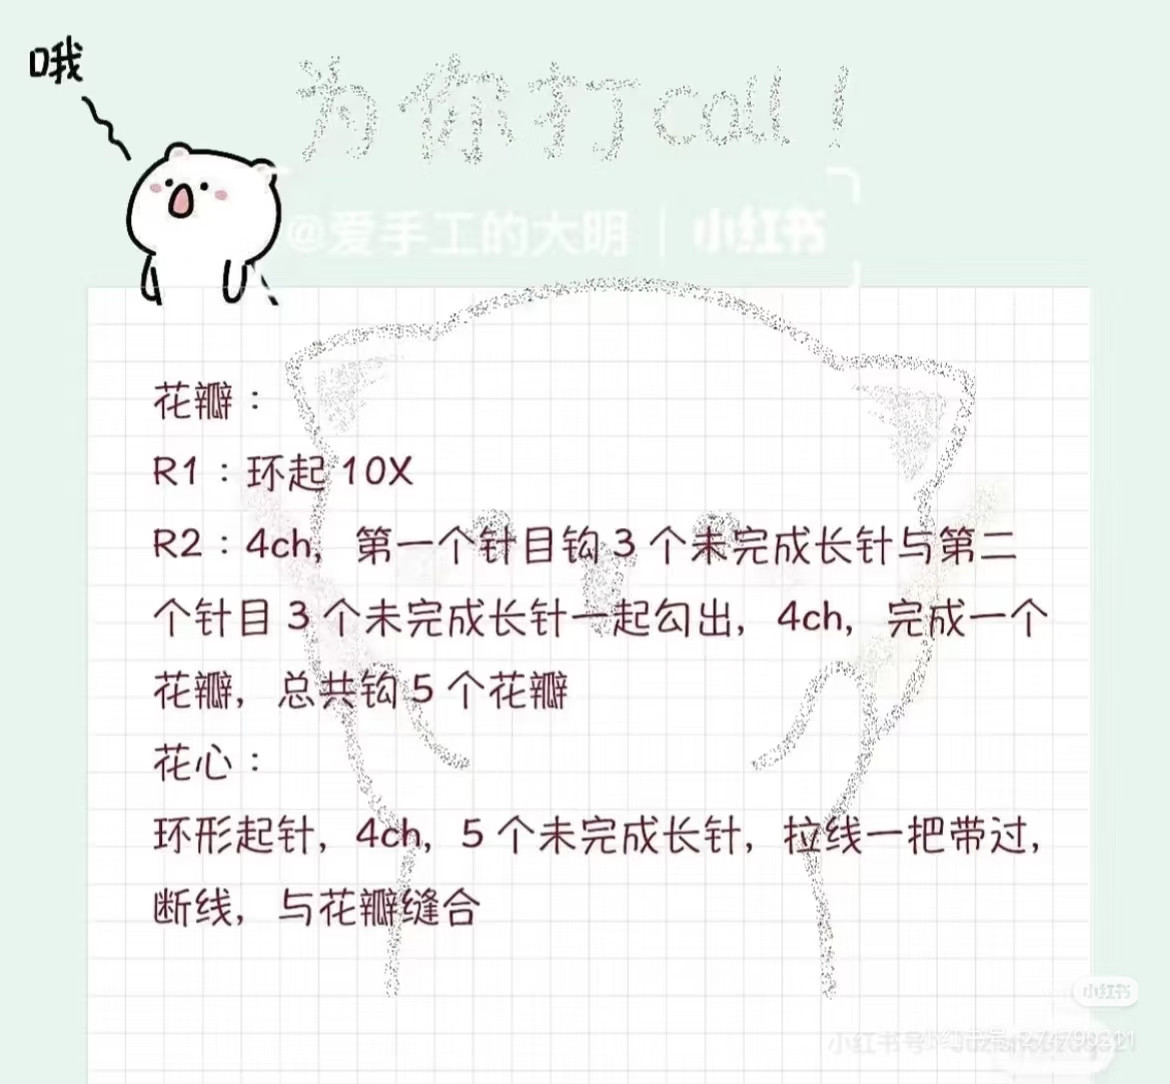 哦
为你打call！
@爱手工的大明 | 小红书
花瓣：
R1：环起10X
R2：4ch，第一个针目钩3个未完成长针与第二
个针目3个未完成长针一起勾出，4ch，完成一个
花瓣，总共钩5个花瓣
花心：
环形起针，4ch，5个未完成长针，拉线一把带过，
断线，与花瓣缝合
小红书
小红书号